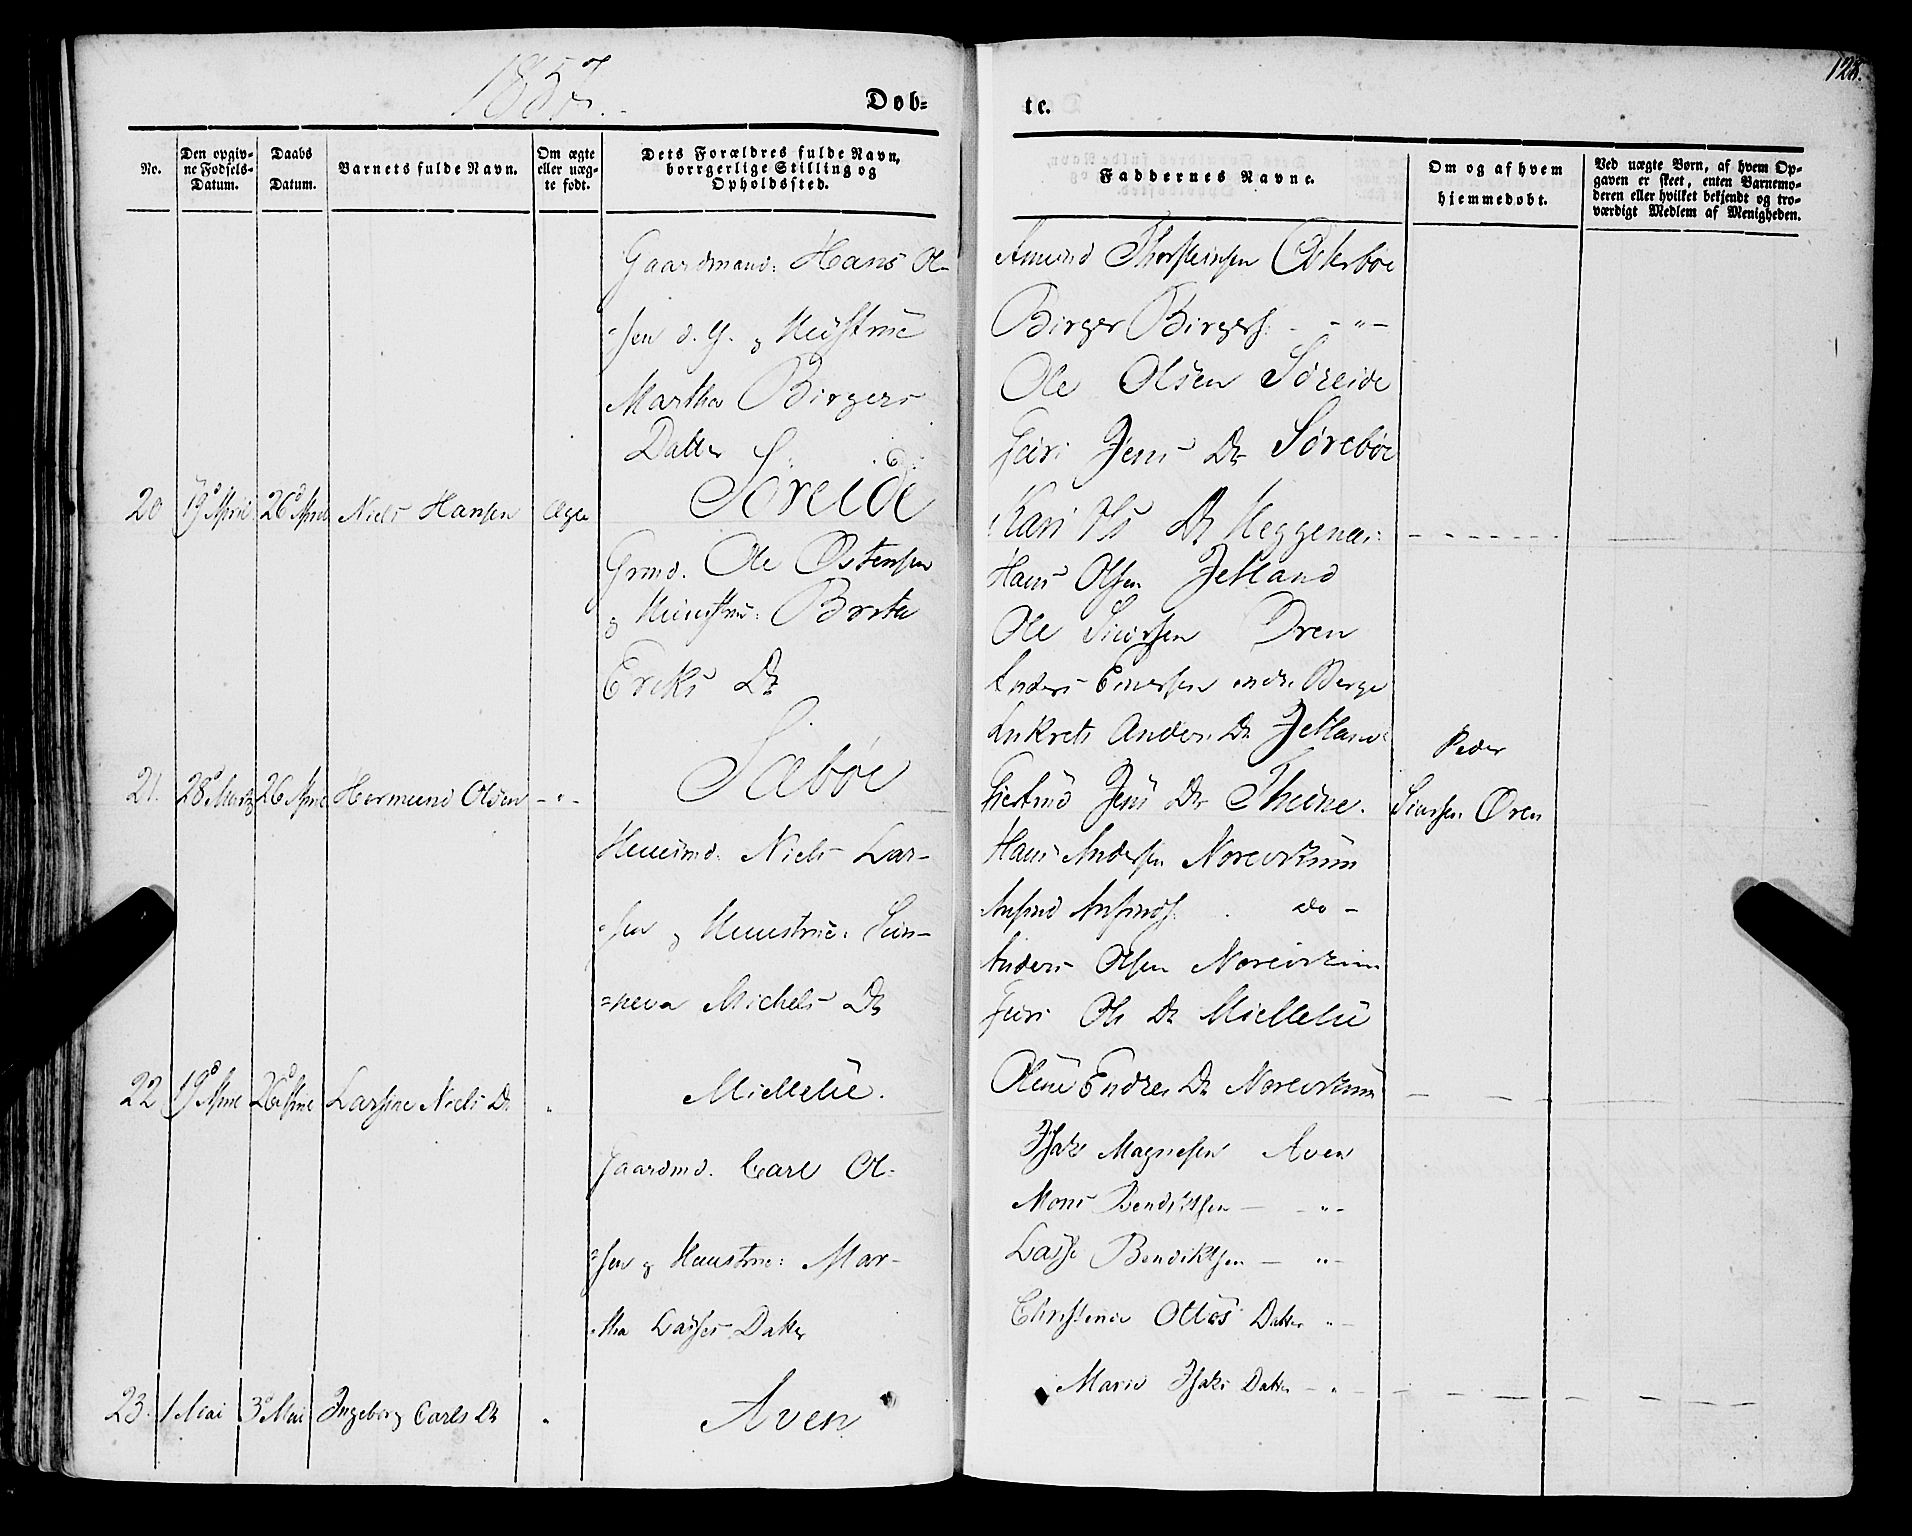 1857.
Døb-
te.
128.
No.
Den opgiv-
ne Fødsels-
Datum.
Daabs
Datum.
Barnets fulde Navn.
Om ægte
eller uæg-
te født.
Dets Forældres fulde Navn,
borgerlige Stilling og
Opholdssted.
Faddernes Navne.
Om og af hvem
hjemmedøbt.
Ved uægte Børn, af hvem Op-
gaven er skeet, enten Barnemo-
deren eller hvilket bekjendt og tro-
værdigt Medlem af Menigheden.
20 19d April 26d April Niels Hansen Ægte
Gaardmand: Hans Ol-
-sen s. G. og Hustrue
Martha Birgers
Datter
Søreide
Amund Thorsteinsen
Birger Birgers: - - " -
Ole Olsen Søreide
Guri Jens Dr Sørebøe
Kari Ols Dr Heggenæs:
21. 28d Marts 26 April Hermund Olsen - " -
Grmd. Ole Østensen
og Huustrue: Brita
Ericks Dr
Sæbøe
Hans Olsen Jetland
Ole Siursen Øren
Anders Einersen indr. Berge
Ankrets Anders Dr Jetland
Giertrud Jens Dr Thune.
Peder
Siursen Øren
22 19d April 26d April Larsine Niels Dr "
Huusmd. Niels Lar-
-sen og Huustrue: Sun-
=neva Michels Dr
Miellelie.
Hans Andersen
Ansind Ansinds. do -
Anders Olsen
Guri Ols Dr Miellelie
Oline Endres Dr
23. 1 Mai 3d Mai Ingeborg Carls Dr "
Gaardmd. Carl Ol-
=sen og Huustrue: Mar-
-tha Lasses Datter
Aven
Isak Magnesen Aven
Mons Bendiktsen - - " -
Lasse Bendiktsen - " -
Christense Ottos Datter " -
Marie Isaks Datter - " -